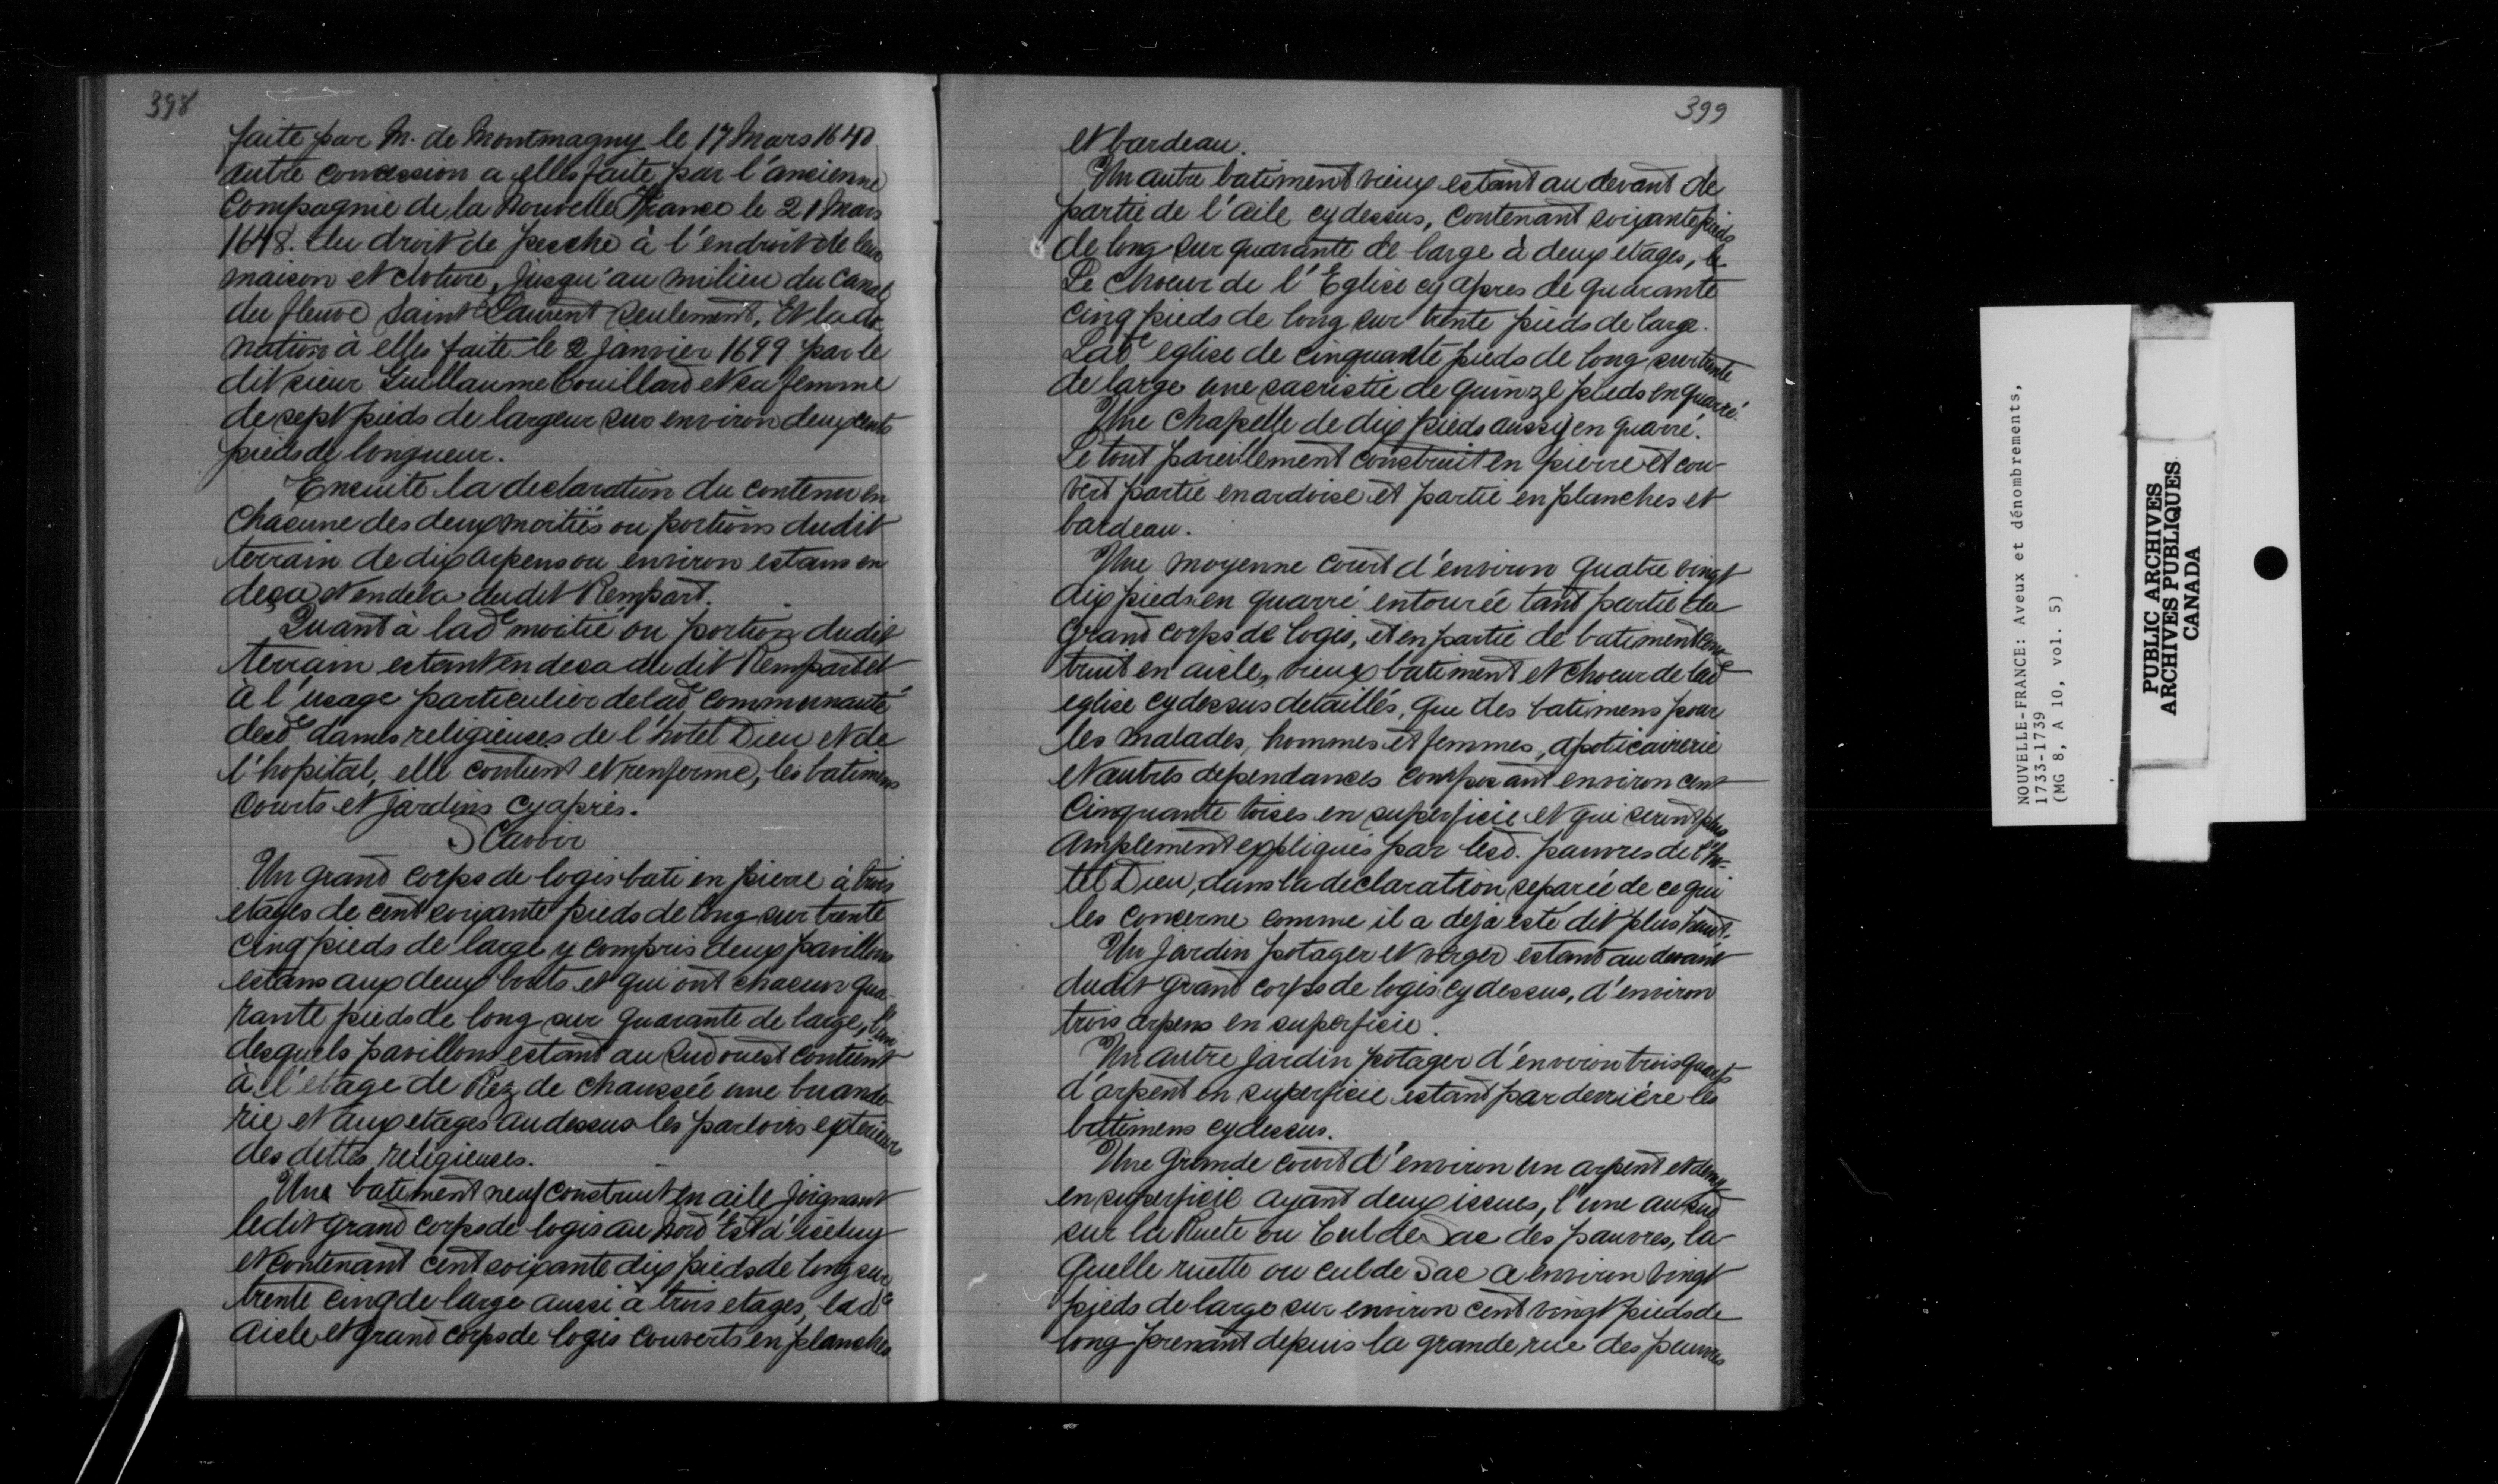 398
faite par M. de Montmagny le 17 Mars 1640
autre concession a elles faite par l'ancienne
Compagnie de la Nouvelle France le 21 Mars
1648. du droit de pesche à l'endroit de leur
maison et cloture, jusqu'au milieu du canal
du fleuve Saint Laurent seulement. Et la do-
nation à elles faite le 2 Janvier 1699 par le
dit sieur Guillaume Couillard et sa femme
de sept pieds de largeur sur environ deux cents
pieds de longueur.
Ensuite la declaration du contenu en
chacune des deux moitiés ou portions dudit
terrain de dix arpens ou environ estans en
deça et en dela dudit Rempart.
Quant à lade moitié ou portion dudit
terrain estant en deca dudit Rempart et
à l'usage particulier de lade communauté
desd. dames religieuses de l'hotel Dieu et de
l'hopital, elle contient et renferme, les batimens
courts et jardins cyaprès.
Scavoir
Un grand corps de logis bati en pierre à trois
etages de cent soixante pieds de long sur trente
cinq pieds de large y compris deux pavillons
estans aux deux bouts et qui ont chacun qua-
rante pieds de long sur quarante de large, l'un
desquels pavillons estant au Sud ouest contient
à l'etage de Rez de chaussée une buande-
rie et aux etages au dessus les parloirs exterieurs
des dittes religieuses.
Une batiment neuf construit en aile joignant
ledit grand corps de logis au Nord Est d'iceluy
et contenant cent soixante dix pieds de long sur
trente cinq de large aussi à trois etages, lade
aisle et grand corps de logis couverts en planches
399
et bardeau.
Un autre batiment vieux estant au devant de
partie de l'aile cydessus, contenant soixante pieds
de long sur quarante de large à deux etages, le
Le choeur de l'Eglise cy apres de quarante
cinq pieds de long sur trente pieds de large.
Lade eglise de cinquante pieds de long sur trente
de large une sacristie de quinze pieds en quarré.
Une chapelle de dix pieds aussy en quarré.
Le tout pareillement construit en pierre et cou-
vert partie en ardoise et partie en planches et
bardeau.
Une moyenne court d'environ quatre vingt
dix pieds en quarré entourée tant partie du
grand corps de logis, et en partie de batiment cons-
truit en aisle, vieux batiment et choeur de lad
eglise cydessus detaillés, que des batimens pour
les malades, hommes et femmes, apoticairerie
et autres dependances composant environ cent
cinquante toises en superficie et qui seront plus
amplement expliqués par lesd. pauvres de l'ho-
tel Dieu, dans la declaration separée de ce qui
les concerne comme il a deja esté dit plus haut.
Un jardin potager et verger estant au devant
dudit grand corps de logis cy dessus, d'environ
trois arpens en superficie.
Un autre jardin potager d'environ trois quarts
d'arpent en superficie estant par derriére les
batimens cydessus.
Une grande court d'environ un arpent et demy
en superficie ayant deux issues, l'une au sud
sur la Ruete ou Cul de Sac des pauvres, la-
quelle ruette ou cul de Sac a environ vingt
pieds de large sur environ cent vingt pieds de
long prenant depuis la grande rue des pauvres
NOUVELLE-FRANCE: Aveux et dénombrements,
1733-1739
(MG 8, A 10, vol. 5)
PUBLIC ARCHIVES
ARCHIVES PUBLIQUES
CANADA